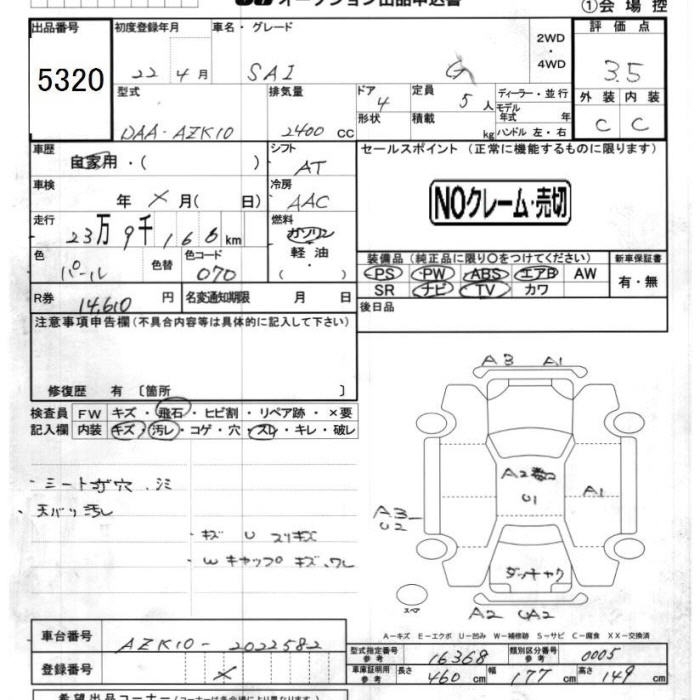 オークション出品申込書
①会場控
出品番号 5320
初度登録年月 22年4月
車名・グレード SAI G
2WD・4WD
評価点 3.5
型式 DAA-AZK10
排気量 2400 CC
ドア 4
形状
定員 5人
積載 kg
ディーラー・並行
モデル年式 年
ハンドル 左・右
外装 C 内装 C
車歴 自家用・( )
シフト AT
セールスポイント (正常に機能するものに限ります)
NOクレーム・売切
車検 年 × 月( 日)
冷房 AAC
走行 23万9千166km
燃料 ガソリン・軽油・( )
色 パール 色替 色コード 070
装備品 (純正品に限り○をつけてください)
PS PW ABS エアB AW
SR ナビ TV カワ
新車保証書 有・無
R券 14,610円
名変通知期限 月 日
後日品
注意事項申告欄(不具合内容等は具体的に記入して下さい)
修復歴 有〔箇所 〕
検査員記入欄
FW キズ・飛石・ヒビ割・リペア跡・×要
内装 キズ・汚レ・コゲ・穴・スレ・キレ・破レ
天バリ汚レ
キズ U スリキズ
Wキャップ キズ、ワレ
A3 A1
A2数コ
U1
A1
A3
U2
ダッチャク
スペア
A2 UA2
A−キズ E−エクボ U−凹み W−補修跡 S−サビ C−腐食 XX−交換済
車台番号 AZK10-2022582
登録番号 ×
型式指定番号 参考 16368
類別区分番号 参考 0005
車庫証明用 参考 長さ 460cm 幅 177cm 高さ 149cm
希望出品コーナー